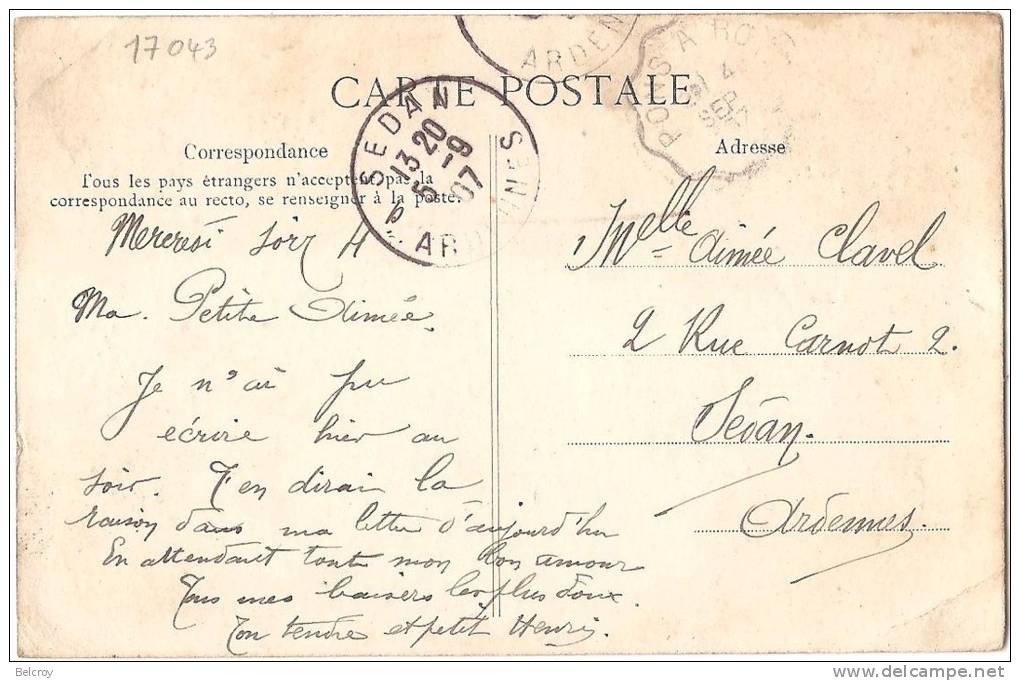 17043
CARTE POSTALE
ARDEN
PONS A RO
4
SEPT
SEDAN
13 20
5 -9
07
ARDENNES
Correspondance
Tous les pays étrangers n'acceptent pas la
correspondance au recto, se renseigner à la poste.
Adresse
Mercredi soir 4
Ma Petite Aimée.
Je n'ai pu
écrire hier au
soir. T'en dirai la
raison dans ma lettre d'aujourd'hui
En attendant toute mon bon amour
Tous mes baisers les plus doux.
Ton tendre et petit Henri.
Melle Aimée Clavel
2 Rue Carnot 2.
Sedan.
Ardennes.
Belcroy
delcampe.net